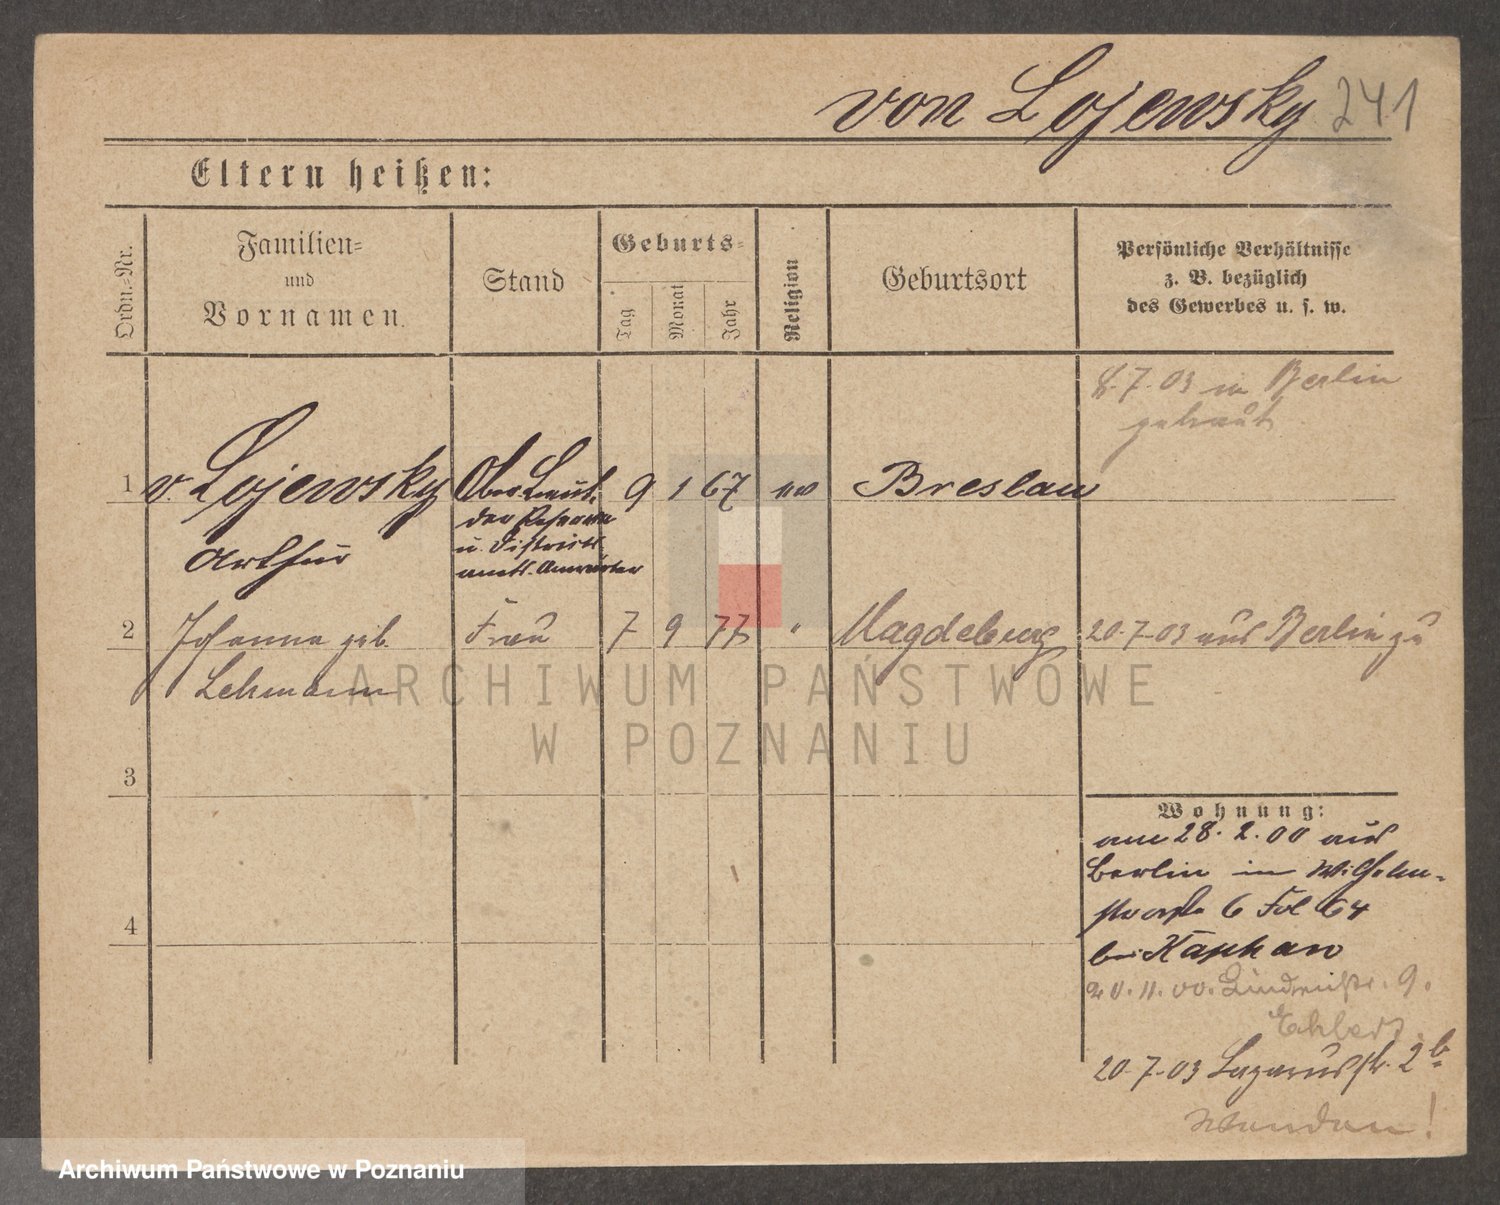 von Lojewsky 241
Eltern heißen:
Ordn.-Nr.
Familien-
und
Vornamen.
Stand
Geburts-
Tag
Monat
Jahr
Religion
Geburtsort
Persönliche Verhältnisse
z. B. bezüglich
des Gewerbes u. s. w.
8.7.03 in Berlin
getraut
1 v. Lojewsky Ober Leut. 9 1 67 ev Breslau
der Reserve
u. Distrikts
amts-Anwärter
Arthur
2 Johanna geb. Frau 7 9 77 " Magdeburg 20.7.03 aus Berlin zu
Lehmann
ARCHIWUM PAŃSTWOWE
W POZNANIU
3
Wohnung:
am 28.2.00 aus
Berlin in Wilhelm-
straße 6 Fol 64
4
bei Kaphan
20.11.00. Lindenstr. 9.
Ehlert
20.7.03 Lazarusstr. 2b
Wenden!
Archiwum Państwowe w Poznaniu